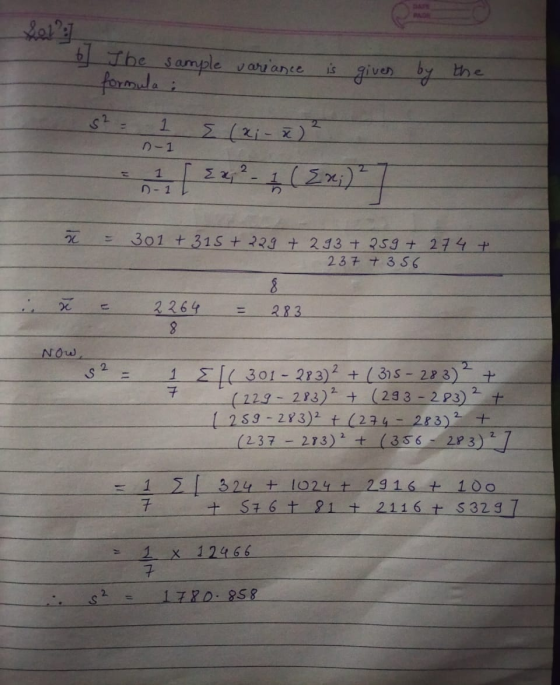 Sol?:]
b] The sample variance is given by the
formula :
s² = 1/n-1 Σ (xi - x̄)²
= 1/n-1 [ Σxi² - 1/n (Σxi)² ]
x̄ = 301 + 315 + 229 + 293 + 259 + 274 +
237 + 356
8
∴ x̄ = 2264/8 = 283
NOW,
s² = 1/7 Σ [(301 - 283)² + (315 - 283)² +
(229 - 283)² + (293 - 283)² +
(259 - 283)² + (274 - 283)² +
(237 - 283)² + (356 - 283)²]
= 1/7 Σ [ 324 + 1024 + 2916 + 100
+ 576 + 81 + 2116 + 5329 ]
= 1/7 x 12466
∴ s² = 1780.858